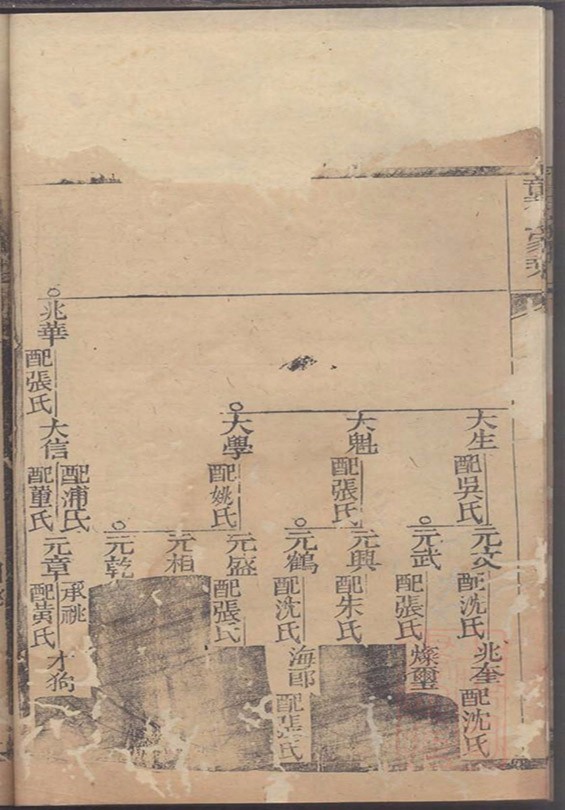 大生
配吳氏
元文
配沈氏
兆奎
配沈氏
元武
配張氏
燦璽
大魁
配張氏
元興
配朱氏
元鶴
配沈氏
海郎
配張氏
大學
配姚氏
元盛
配張氏
元相
元乾
兆華
配張氏
大信
配浦氏
配董氏
元章
承祧
配黃氏
才狗